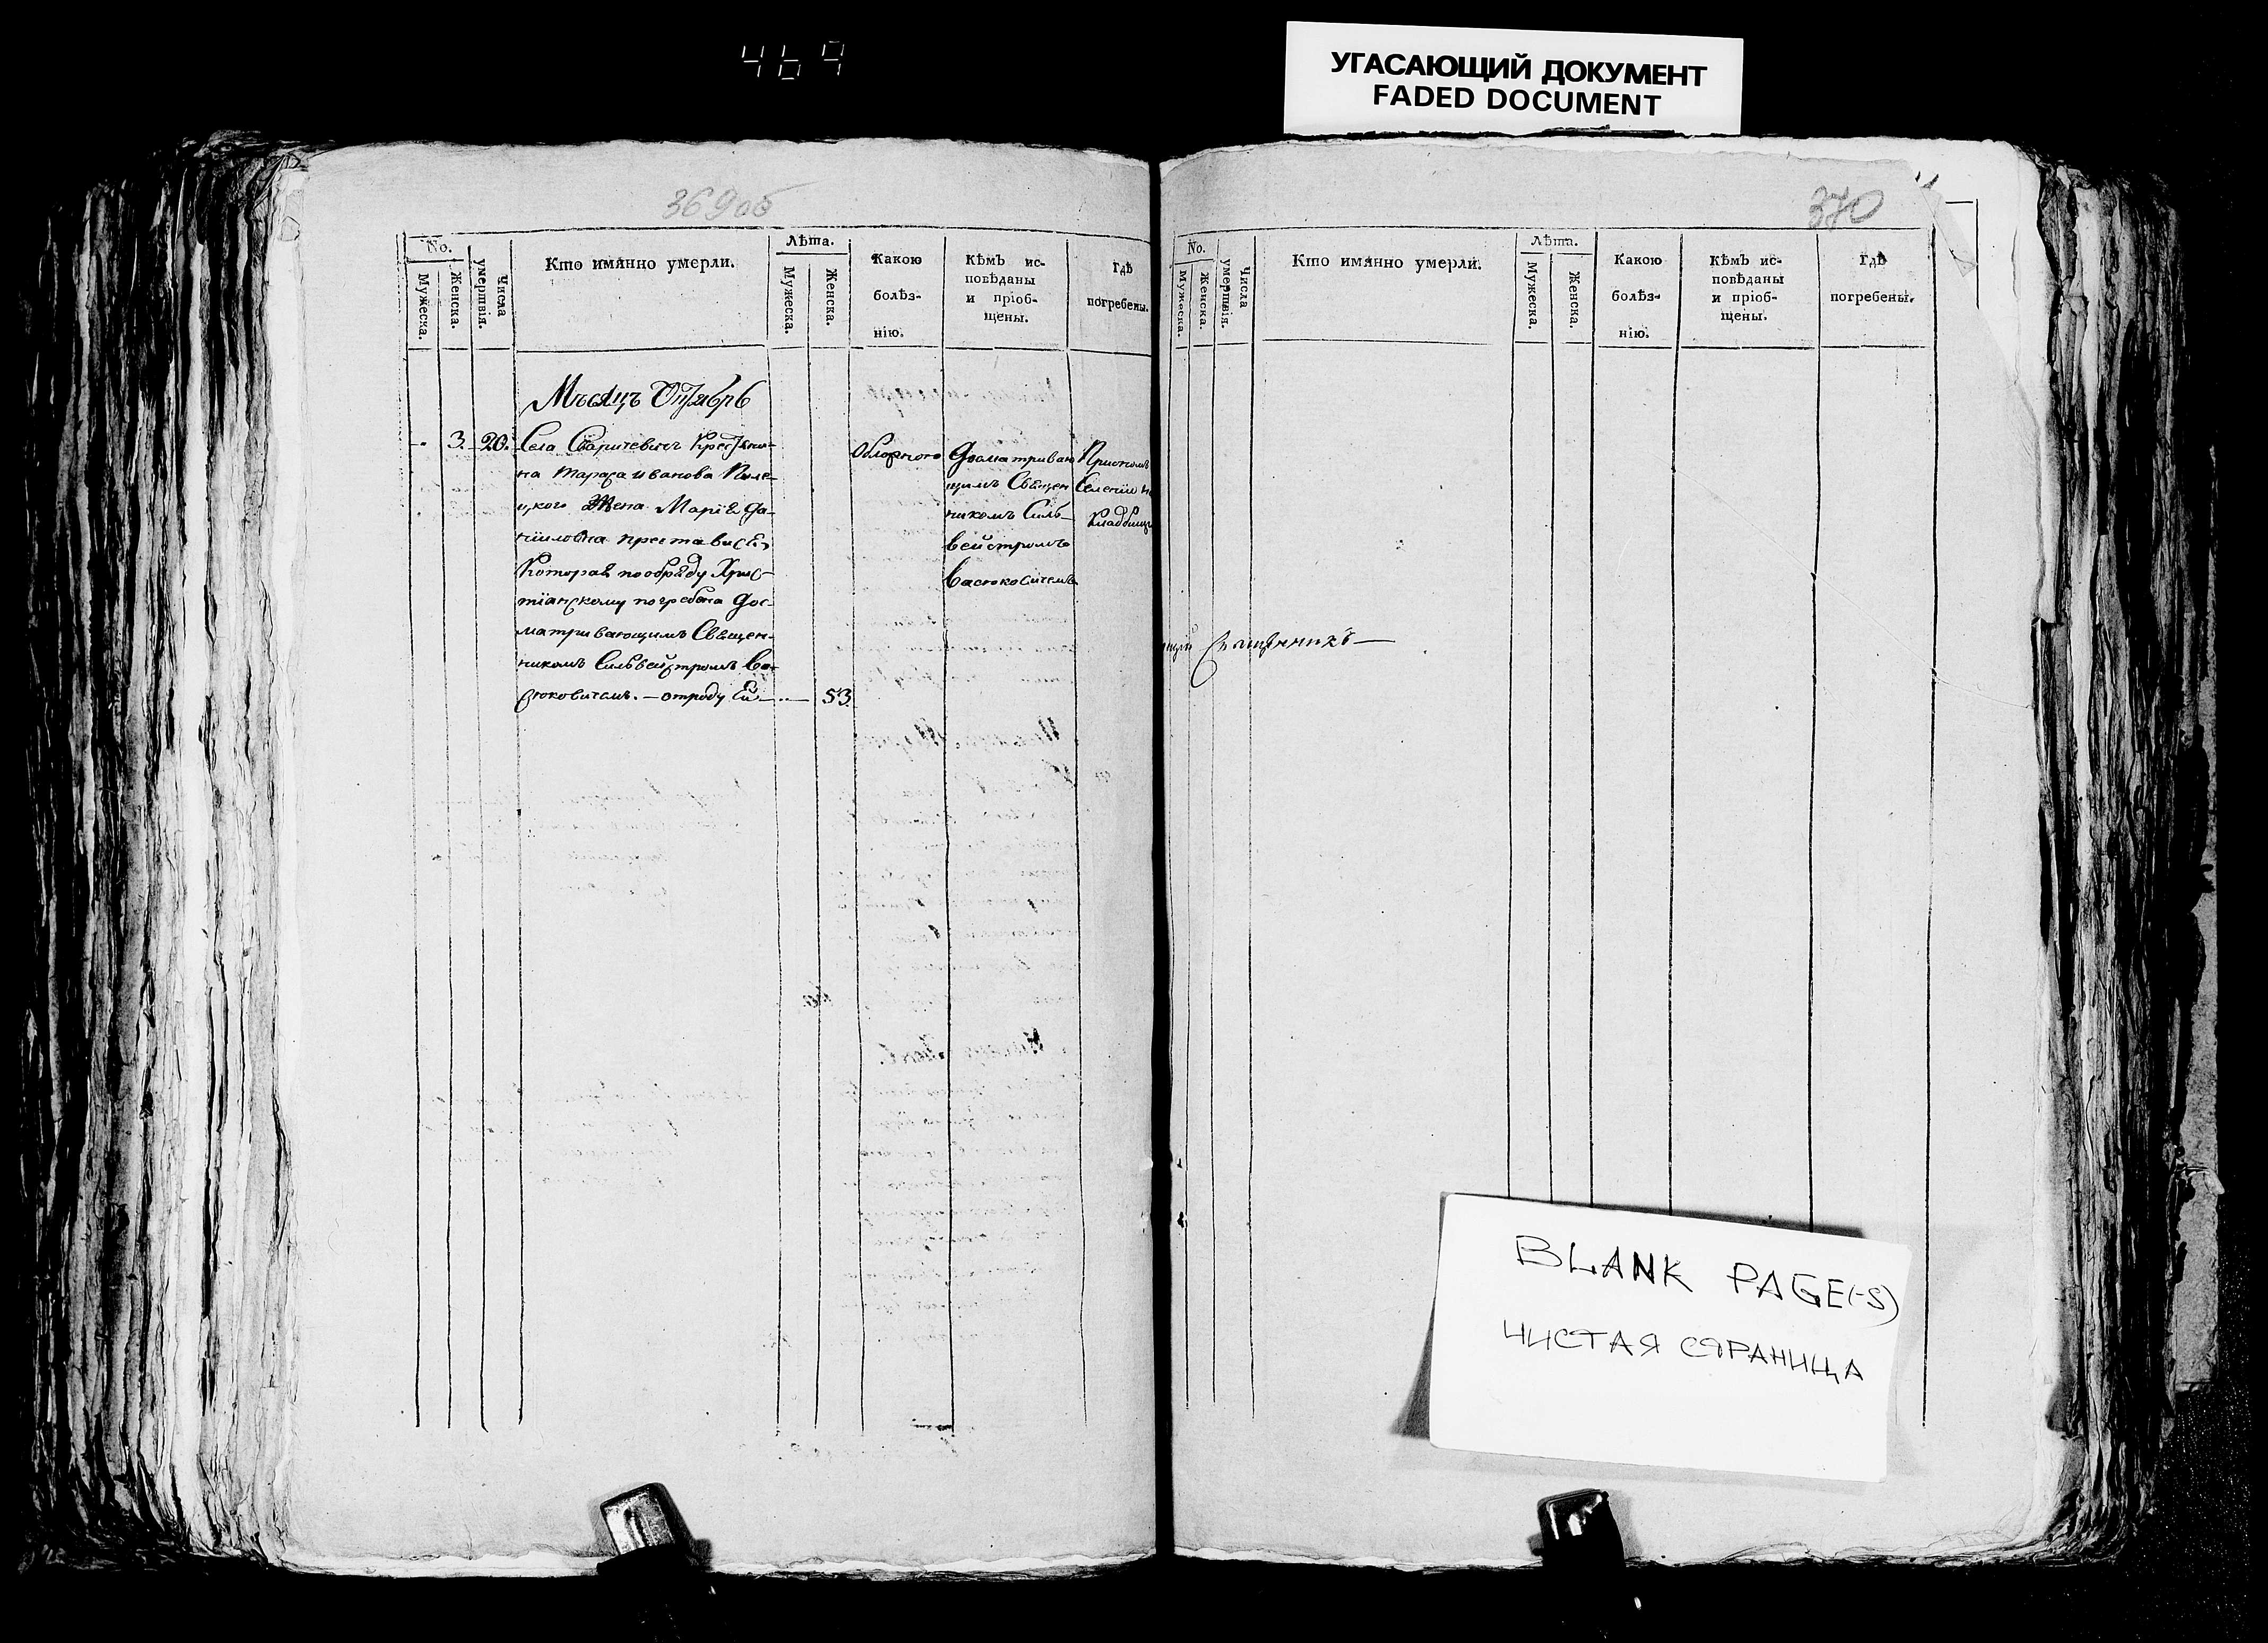 469
УГАСАЮЩИЙ ДОКУМЕНТ
FADED DOCUMENT
369об
No.
Мужеска.
Женска.
Числа умертвія.
Кто имянно умерли.
Лѣта.
Мужеска.
Женска.
Какою
болѣз-
нію.
Кѣмъ ис-
повѣданы
и пріоб-
щены.
Гдѣ
погребены.
Мѣсяцъ Октябрь
3. 20. Села Сваричевич Крестьяни-
на Тараса Иванова Поле-
цкого Жена Марія Да-
ніиловна преставися
Которая по обряду Хрис-
тіанскому погребена дос-
матривающимъ Священ-
никомъ Сильвейстромъ Ва-
сюковичемъ. — отроду Ей — 53
досматриваю
щимъ Священ
никомъ Силь-
вейстромъ
Васюковичемъ
селеніи
Кладбищ
370
No.
Мужеска.
Женска.
Числа умертвія.
Кто имянно умерли.
Лѣта.
Мужеска.
Женска.
Какою
болѣз-
нію.
Кѣмъ ис-
повѣданы
и пріоб-
щены.
Гдѣ
погребены.
Священникъ —
BLANK PAGE(-S)
ЧИСТАЯ СТРАНИЦА